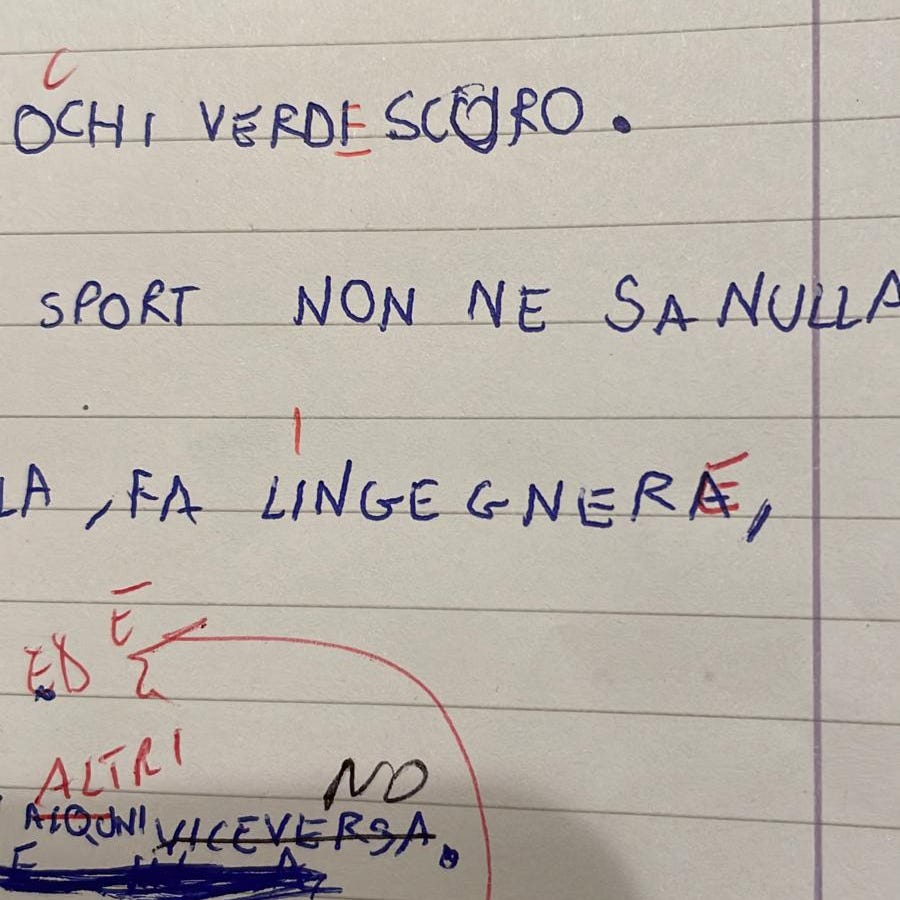 C
OCHI VERDE SCURO.
SPORT NON NE SA NULLA
LA, FA LINGEGNERE,
E
ED
ALTRI
NO
AIQUNI VICEVERSA.